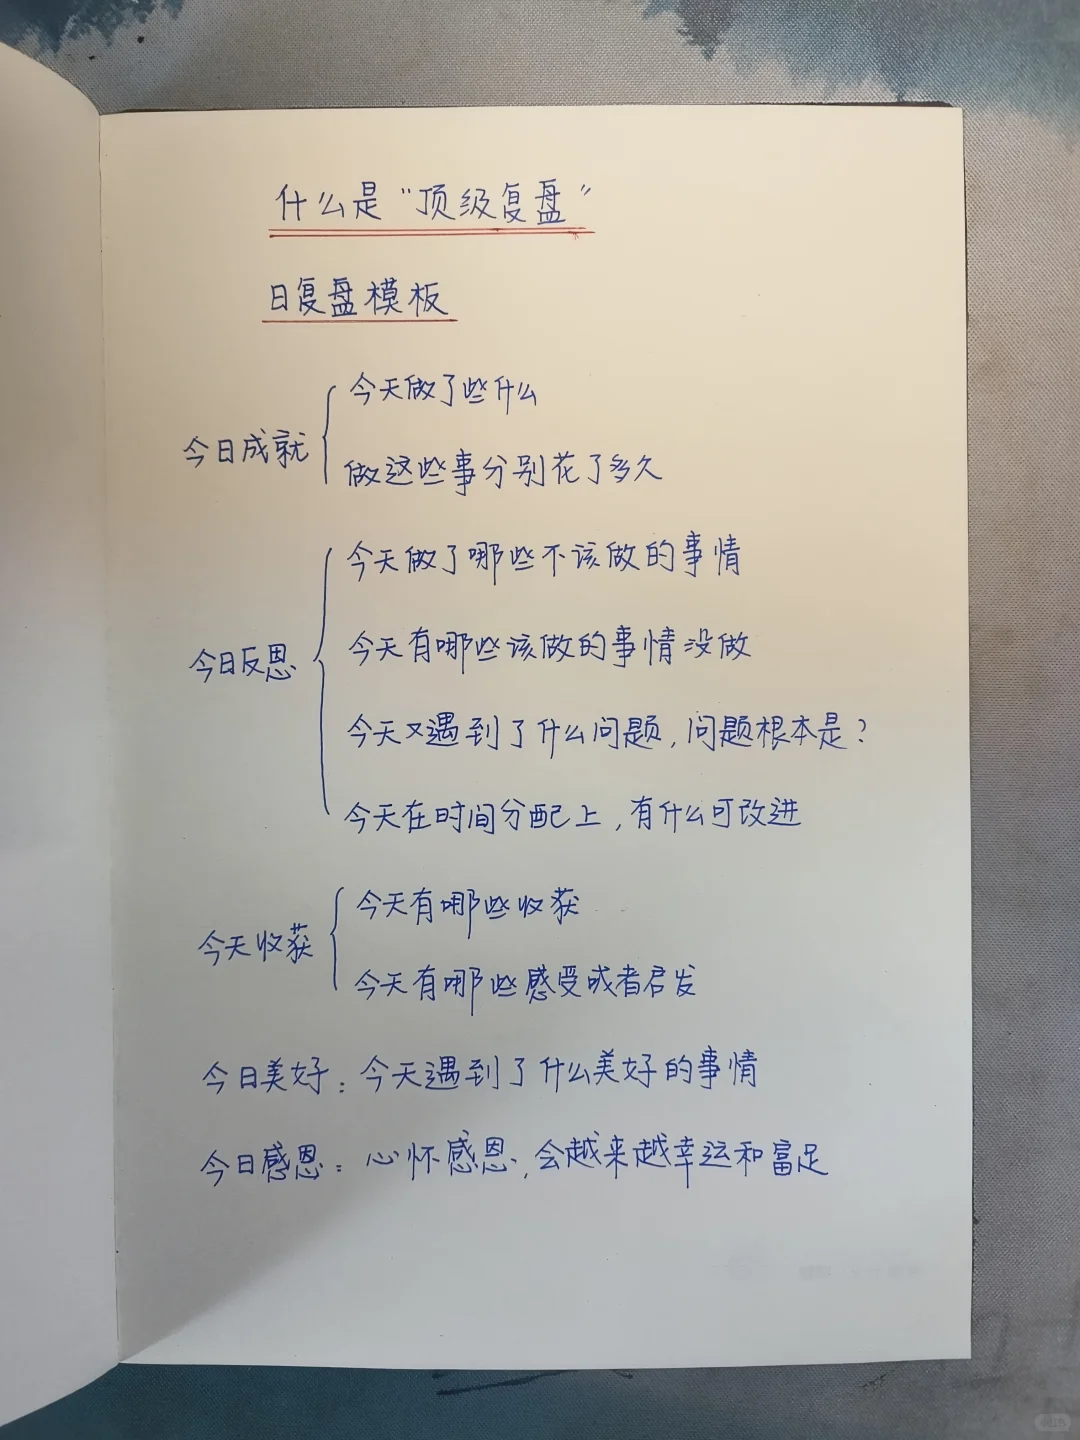 什么是“顶级复盘”
日复盘模板
今日成就
今天做了些什么
做这些事分别花了多久
今日反思
今天做了哪些不该做的事情
今天有哪些该做的事情没做
今天又遇到了什么问题,问题根本是?
今天在时间分配上,有什么可改进
今天收获
今天有哪些收获
今天有哪些感受或者启发
今日美好:今天遇到了什么美好的事情
今日感恩:心怀感恩,会越来越幸运和富足